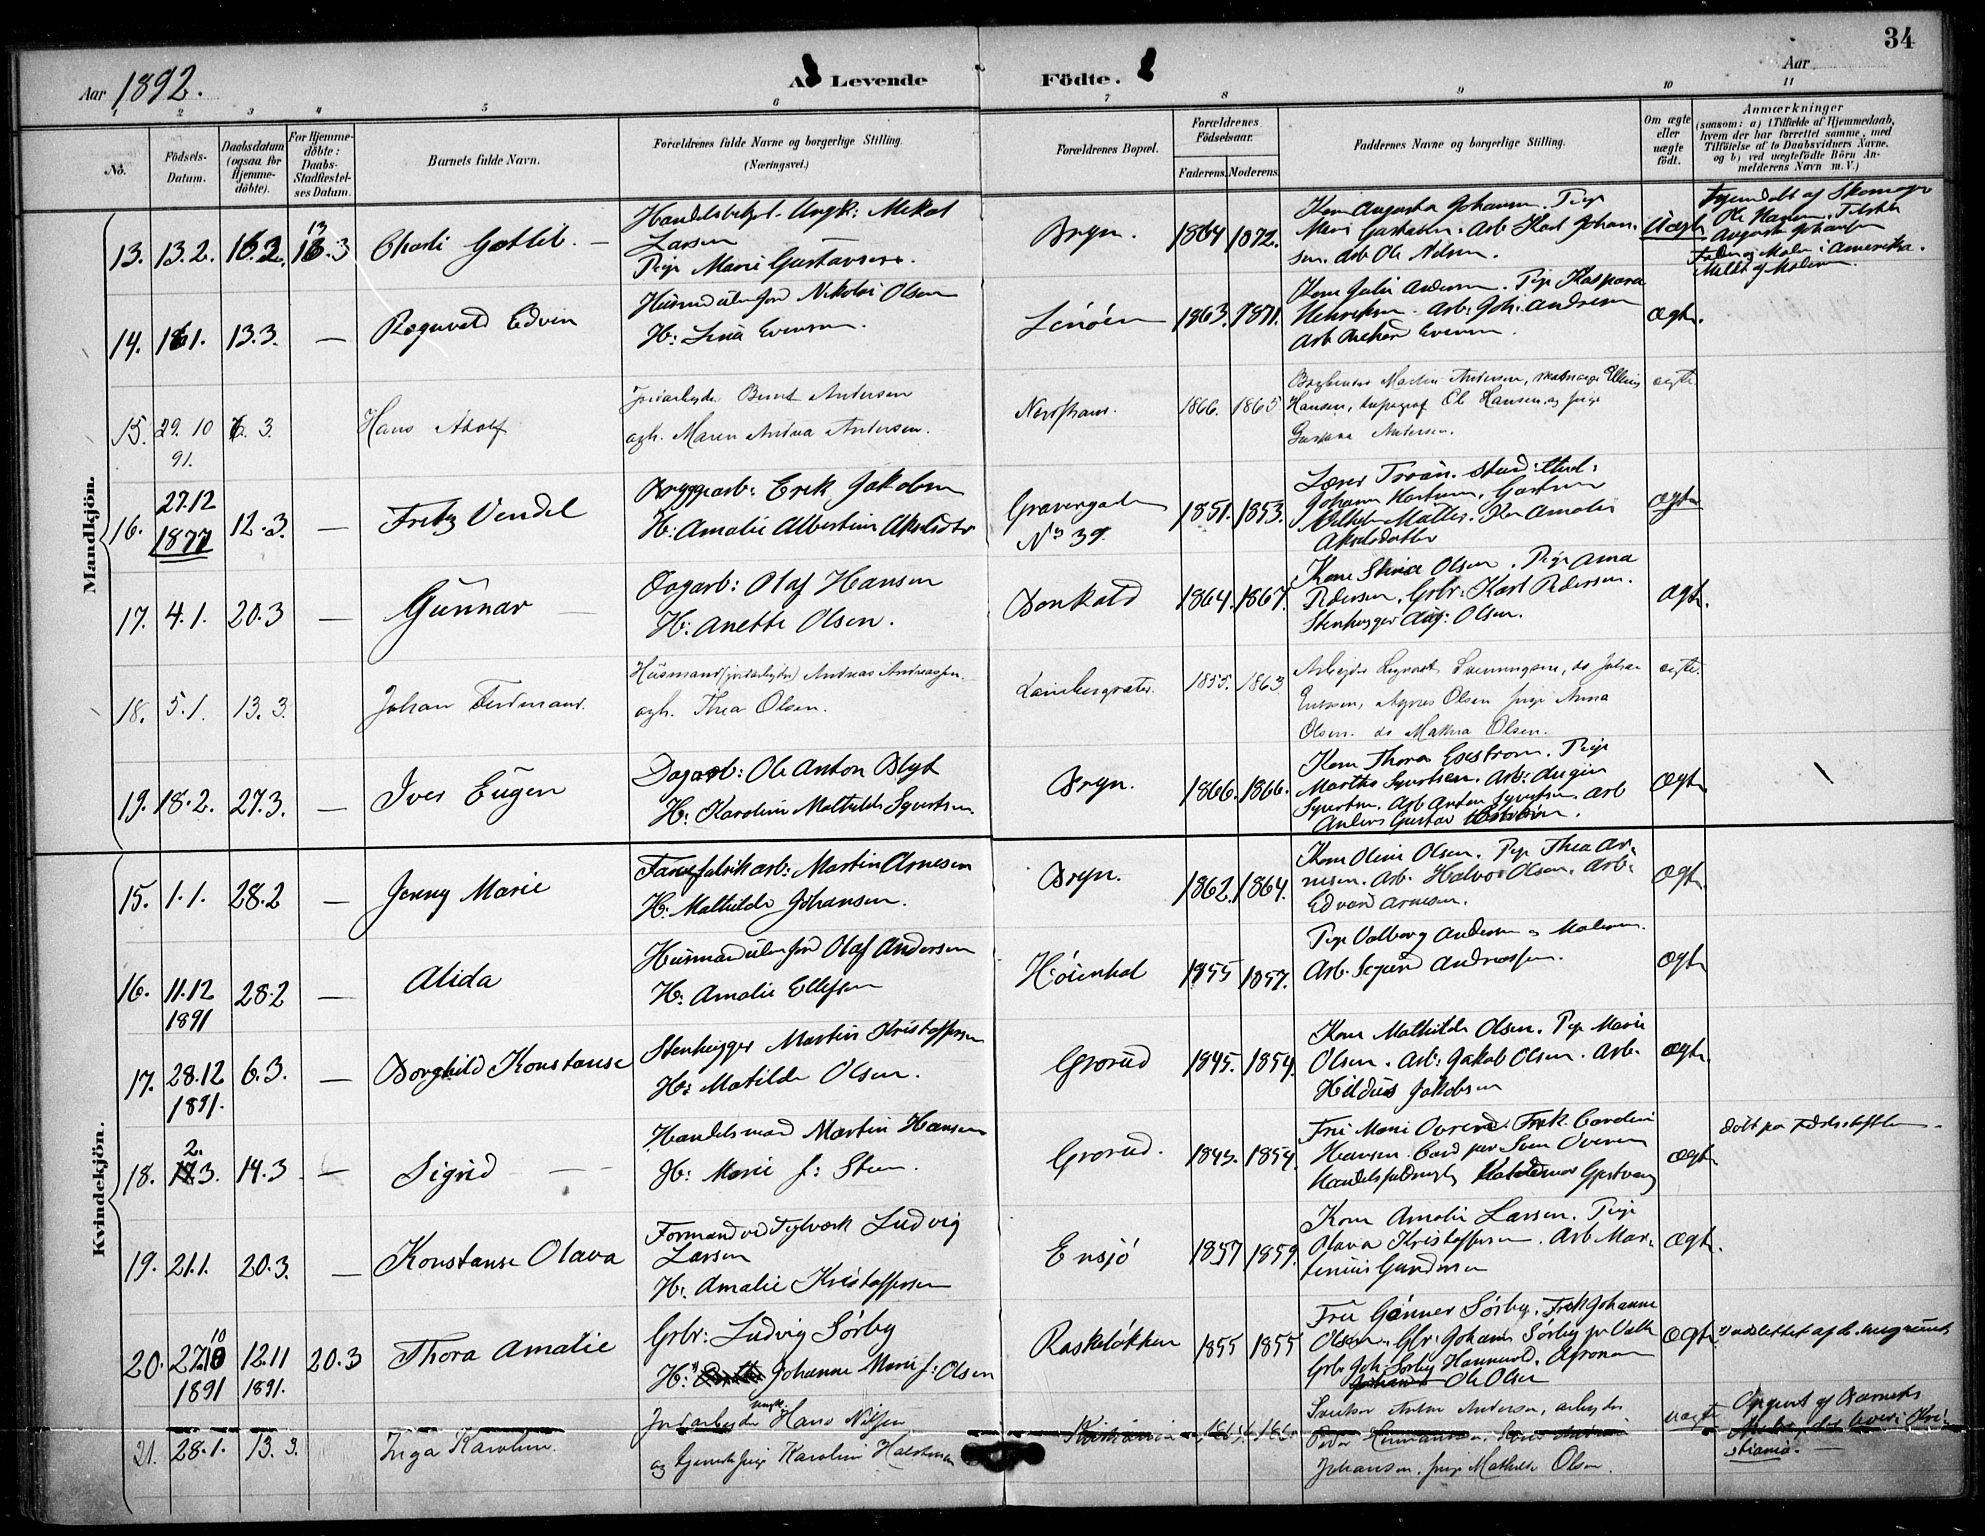 34
Aar 1892.
A. Levende Födte.
Aar
1 2 3 4 5 6 7 8 9 10 11
No.
Födsels-Datum.
Daabsdatum (ogsaa for Hjemme-döbte).
For Hjemme-döbte: Daabs-Stadfæstel-ses Datum.
Barnets fulde Navn.
Forældrenes fulde Navne og borgerlige Stilling.
(Næringsvei.)
Forældrenes Bopæl.
Forældrenes Födselsaar.
Faderens. Moderens.
Faddernes Navne og borgerlige Stilling.
Om ægte eller uægte födt.
Anmærkninger
(saasom: a) i Tilfælde af Hjemmedaab, hvem der har forrettet samme, med Tilföielse af to Daabsvidners Navne, og b) ved uægtefödte Börn An-melderens Navn m. V.)
Mandkjön.
13. 13.2. 16.2. 13.3 Charli Gottlib.
Ungk: Mikal Larsen
Pige Marie Gustavsen.
Bryn. 1864 1872.
Kone Augusta Johansen. Pige
Marie Gustavsen. Arb. Karl Johansen. Arb Ole Nilsen.
Uægte
Hjemdøbt af Skomager
Ole Hansen. Tilstede
Augusta Johansen
Fader og Moder i Amerika.
Meldt af Moderen.
14. 16.1. 13.3. — Ragnvald Edvin
Husmd uden jord Nikolai Olsen
H: Lina Evensen.
1863. 1871.
Kone Julie Andersen. Pige Kaspara
Henriksen. Arb: Joh: Andersen
Arb Evensen
ægte.
15. 29. 10 91. 6. 3. Hans Adolf
Jordarbeider Bernt Andersen
ogh. Maren Andrea Andersen.
1866. 1865
Martin Andersen, Elling
Hansen, typograf Ole Hansen og pige
Andersen.
ægte
16. 27.12 1877 12.3. — Fritz Vendel
Bryggearb: Erik Jakobsen
H: Amalie Albertine Akselsdtr
Gravergaden
No 39.
1851. 1853.
Lærer Troan. Stud:
Johannes Amalie
Akselsdatter
ægte
17. 4.1. 20.3 — Gunnar
Dagarb: Olaf Hansen
H: Anette Olsen.
Bonkald 1864. 1867.
Kone Stina Olsen. Pige Anna
Pedersen. Grbr: Karl Pedersen.
Stenhugger Aug: Olsen.
ægte.
18. 5.1. 13. 3. Johan Ferdinand.
Husmand (jordarbeider) Andreas Andreassen.
ogh. Thea Olsen.
1855. 1863
Arbeider Svenningsen, do Johan
Eriksen, Agnes Olsen pige Anna
Olsen. do Mathea Olsen.
ægte.
19. 18.2. 27.3. — Iver Eugen
Dagarb: Ole Anton Blyt
H: Karoline Mathilde Syvertsen.
Bryn. 1866. 1866.
Kone Thora Ekstrom. Pige
Martha Syvertsen. Arb: August
Syvertsen. Arb Anton Syvertsen. Arb
Anders Gustav
ægte.
Kvindekjön.
15. 1.1. 28.2 — Jenny Marie
Farvefabrikarb: Martin Arnesen
H: Mathilde Johansen.
Bryn. 1862. 1864.
Kone Oline Olsen. Pige Thea Ar-
nesen. Arb. Halvor Olsen. Arb.
Edvard Arnesen.
ægte
16. 11.12 1891 28.2 — Alida
Husmand uden jord Olaf Andersen
H: Amalie Ellefsen
Høienhal 1855 1857.
Pige Valborg Andersen og Moderen.
Arb. Sigurd Andreassen.
ægte
17. 28.12 1891. 6.3. — Borghild Konstanse
Stenhugger Martin Kristoffersen
H: Matilde Olsen.
Grorud 1845. 1854.
Kone Mathilde Olsen. Pige Marie
Olsen. Arb: Jakob Olsen. Arb.
Hildus Jakobsen
ægte.
18. 2.3. 14.3 — Sigrid
Handelsmand Martin Hansen
H: Marie f: Steen.
Grorud. 1845. 1854.
Fru Marie Overen. Frk. Caroline
Hansen. Sven Overen
Handelsfuldmægtig
ægte
døbt paa Fødselsstiftelsen.
19. 21.1. 20.3. — Konstanse Olava
Formand ved Teglværk Ludvig
Larsen
H: Amalie Kristoffersen
Ensjö 1857 1859.
Kone Amalie Larsen. Pige
Olava Kristoffersen. Arb. Mar-
tinius Gundersen
ægte.
20. 27.10 1891 12.11 1891. 20.3 Thora Amalie
Grbr: Ludvig Sørby
H: Johanne Marie f: Olsen
Raskeløkken 1855 1855
Fru Gunner Sørby. Frk Johanne
Olsen. Gbr: Johans Sørby
Grbr Joh: Sørby Agronom
Ole Olsen
ægte.
21. 28.1. 13. 3. Inga Karoline.
Jordarbeider ungk. Hans Nilsen
og tjenestepige Karoline Halvorsen
Kristiania
Snekker Anton Andersen, arbeider
Peder Hermansen,
Johansen, pige Mathilde Olsen.
uægte
Opgivet af Barnets
Moder, der bor i Kri-
stiania. —